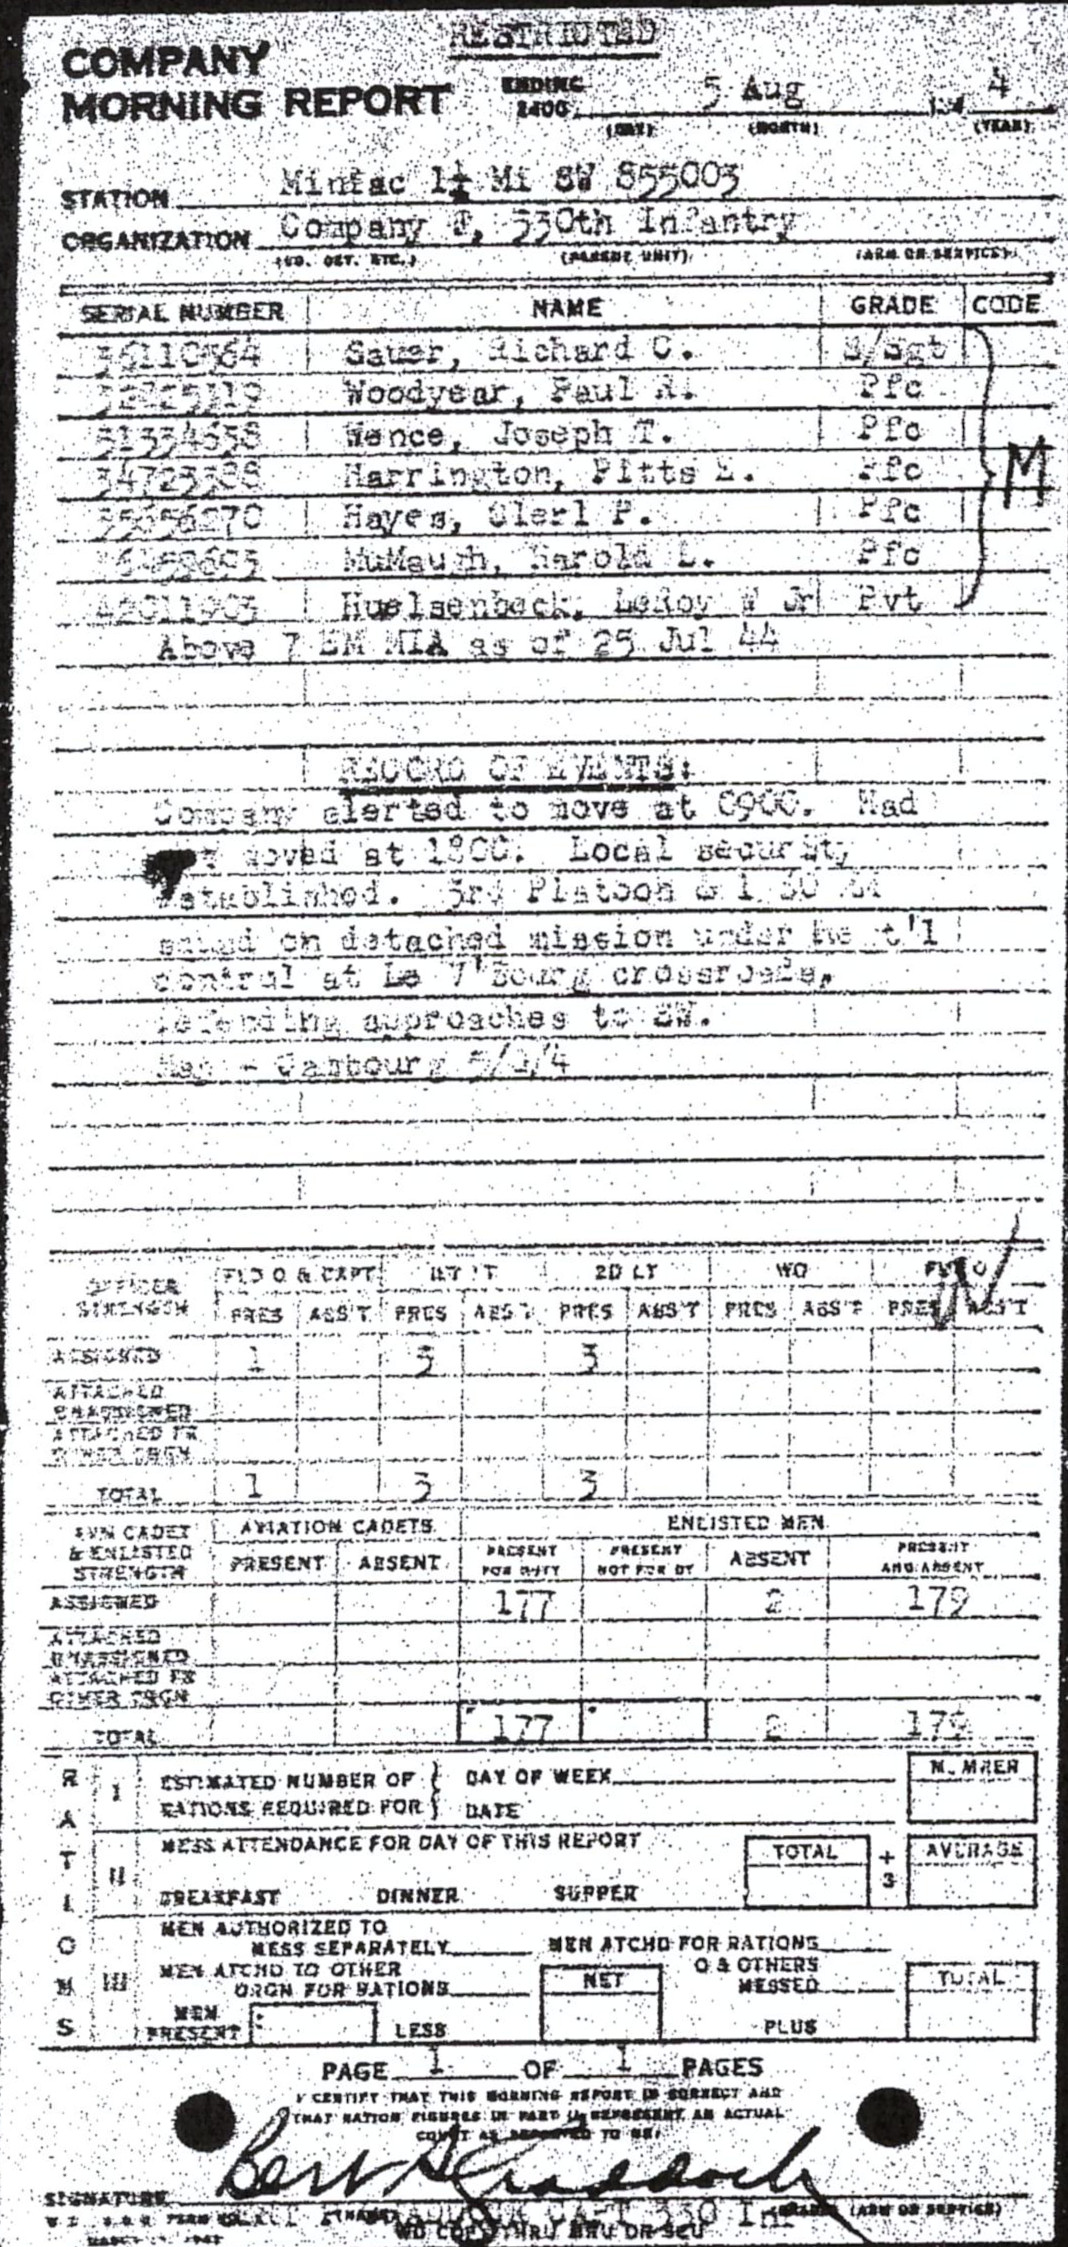 RESTRICTED
COMPANY
MORNING REPORT
ENDING 2400 5 Aug 194 4
(DAY) (MONTH) (YEAR)
STATION Miniac 1½ Mi SW 855003
ORGANIZATION Company , 330th Infantry
(CO. DET. ETC.) (PARENT UNIT) (ARM OR SERVICE)
SERIAL NUMBER NAME GRADE CODE
36110584 Sauer, Richard C. S/Sgt
Woodyear, Paul A. Pfc
31334638 Wence, Joseph T. Pfc
34723388 Harrington, Pitts E. Pfc
35656270 Hayes, Clerl P. Pfc
McMaugh, Harold L. Pfc
42011903 Huelsenbeck, LeRoy W Jr Pvt
M
Above 7 EM MIA as of 25 Jul 44
RECORD OF EVENTS:
Company alerted to move at 0900. Had
moved at 1800. Local security
established. 3rd Platoon & 1
on detached mission under
control at La V' Bourg crossroads,
defending approaches to SW.
Map -
OFFICER STRENGTH FLD O & CAPT 1ST LT 2D LT WO FLT O
PRES ABS'T PRES ABS'T PRES ABS'T PRES ABS'T PRES ABS'T
ASSIGNED 1 3 3
ATTACHED UNASSIGNED
ATTACHED FR OTHER ORGN
TOTAL 1 3 3
AVN CADET & ENLISTED STRENGTH AVIATION CADETS ENLISTED MEN
PRESENT ABSENT PRESENT FOR DUTY PRESENT NOT FOR DY ABSENT PRESENT AND ABSENT
ASSIGNED 177 2 179
ATTACHED UNASSIGNED
ATTACHED FR OTHER ORGN
TOTAL 177 2 179
RATIONS
I ESTIMATED NUMBER OF RATIONS REQUIRED FOR DAY OF WEEK NUMBER
DATE
II MESS ATTENDANCE FOR DAY OF THIS REPORT TOTAL ÷ 3 AVERAGE
BREAKFAST DINNER SUPPER
III MEN AUTHORIZED TO MESS SEPARATELY MEN ATCHD FOR RATIONS
MEN ATCHD TO OTHER ORGN FOR RATIONS NET O & OTHERS MESSED TOTAL
MEN PRESENT LESS PLUS
PAGE 1 OF 1 PAGES
I CERTIFY THAT THIS MORNING REPORT IS CORRECT AND
THAT RATION FIGURES IN PART II REPRESENT AN ACTUAL
COUNT AS REPORTED TO ME.
SIGNATURE
(NAME) CAPT 330 Inf (GRADE) (ARM OR SERVICE)
WD COPY THRU MRU OR SCU